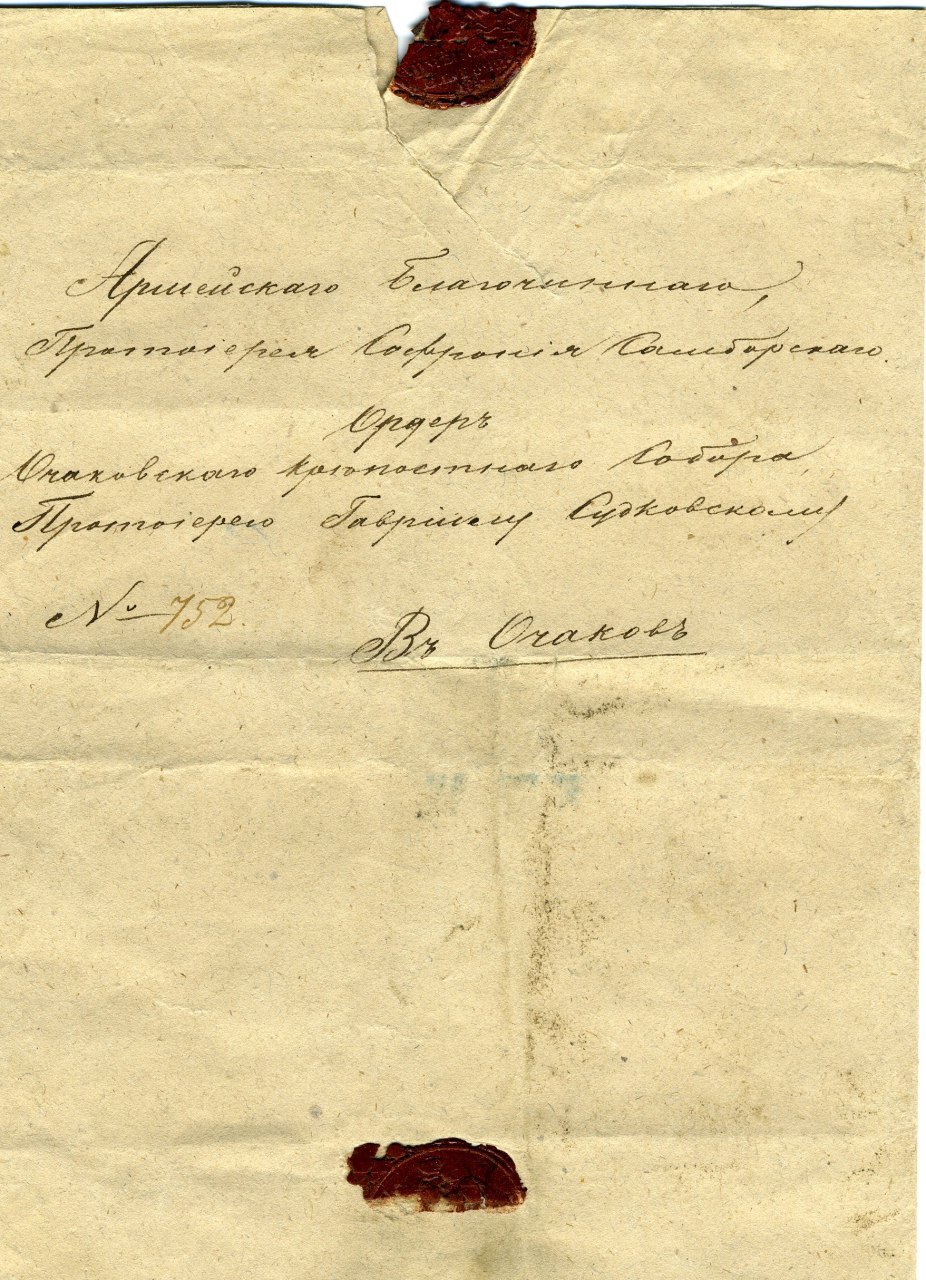 Армейскаго Благочиннаго,
Протоіерея Софронія Самборскаго.
Ордеръ
Очаковскаго крѣпостнаго Собора,
Протоіерею Гавріилу Судковскому
№ 752.
Въ Очаковъ